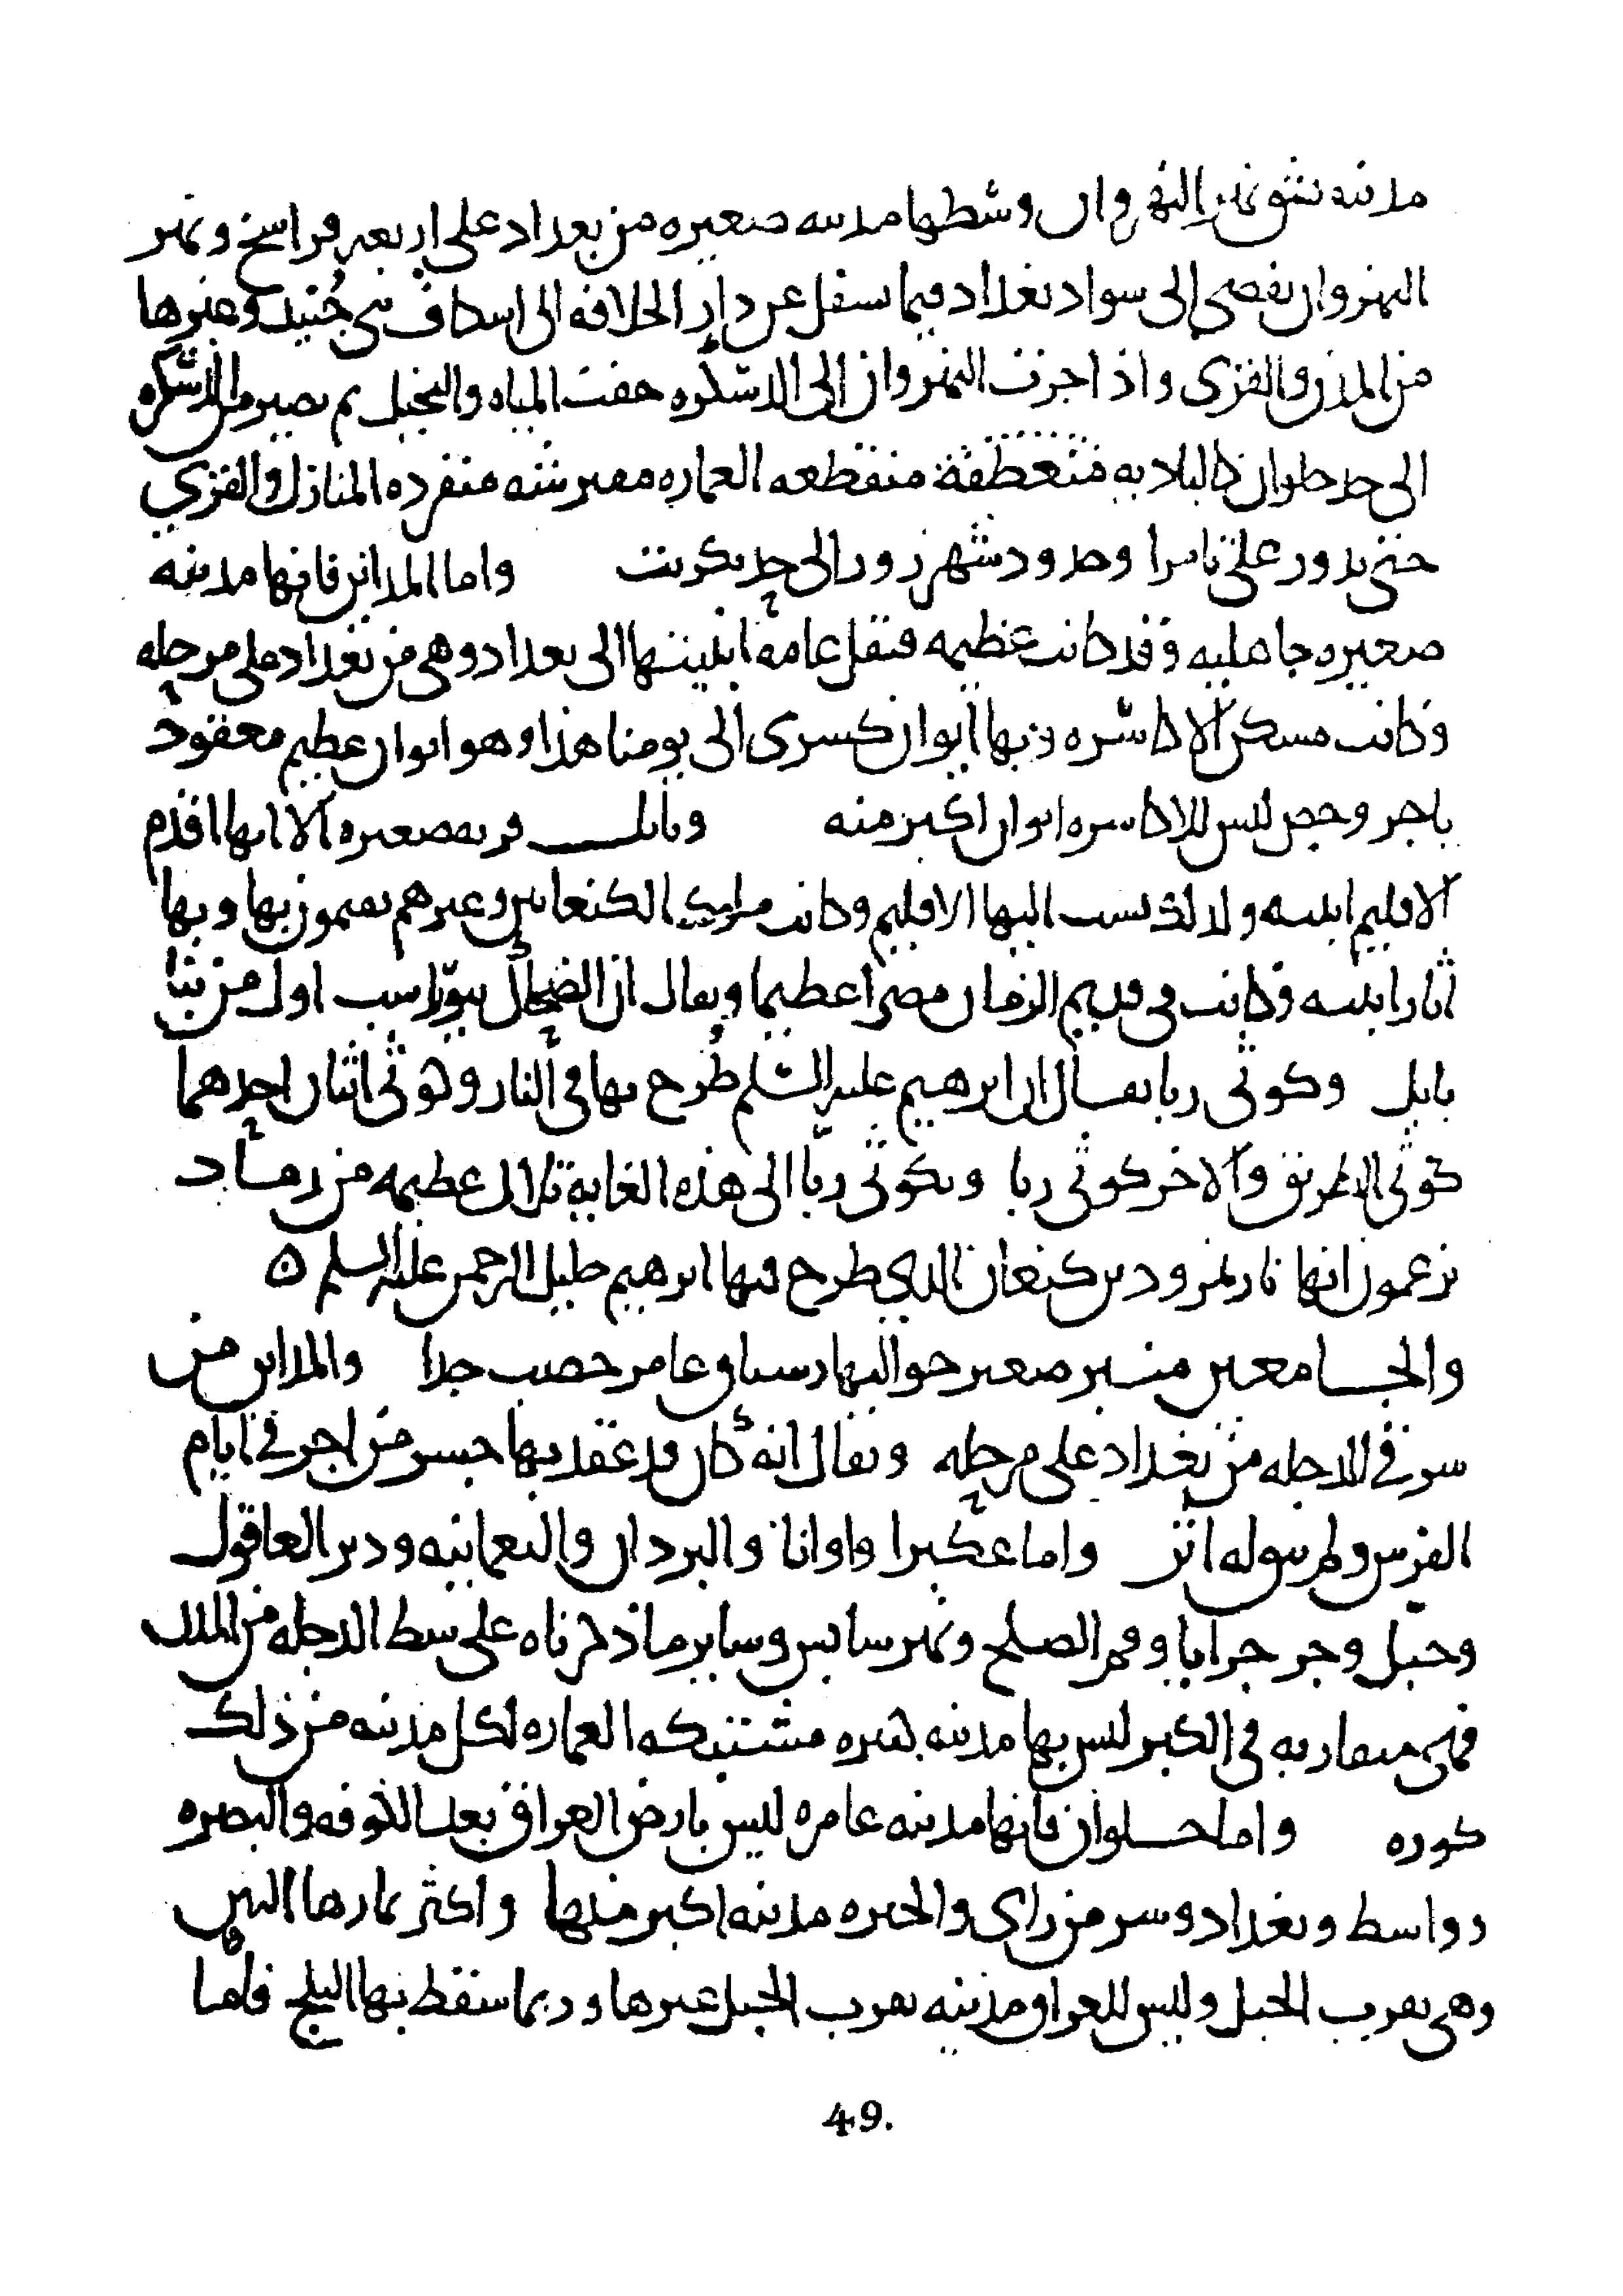 مدينه يشق نهر النهروان وسطها مدينه صغيره من بغداد على اربعه فراسخ ونهر
النهروان يفضى الى سواد بغداد فيما سفل عن دار الخلافه الى اسكاف بنى جُنيد وغيرها
من المدن والقرى واذا جزت النهروان الى الدسكره خفت المياه والنخيل ثم يصير من الدسكره
الى حد حلوان كالباديه منقطعه العماره مفترشه منفرده المنازل والقرى
حتى يدور على تامرا وحدود شهرزور الى حد تكريت واما المداين فانها مدينه
صغيره جاهليه وقد كانت عظيمه فنقل عامه ابنيتها الى بغداد وهى من بغداد على مرحله
وكانت مسكن الاكاسره وبها ايوان كسرى الى يومنا هذا وهو ايوان عظيم معقود
باجر وجص ليس للاكاسره ايوان اكبر منه وبابل قريه صغيره الا انها اقدم
الاقليم ابنيه ولذلك نسب اليها الاقليم وكانت ملوك الكنعانيين وغيرهم يقيمون بها وبها
اثار ابنيه وكانت فى قديم الزمان مصرا عظيما ويقال ان الضحاك بيوراسب اول من بنا
بابل وكوثى ربا يقال ان ابرهيم عليه السلم طُرح بها فى النار وكوثى اثنان احدهما
كوثى الطريق والاخر كوثى ربا وبكوثى ربا الى هذه الغايه تلال عظيمه من رماد
يزعمون انها نار نمرود بن كنعان الذي طرح فيها ابرهيم خليل الرحمن عليه السلم ه
والجامعين منبر صغير حواليها رستاق عامر خصب جدا والمداين من
شرقى الدجله من بغداد على مرحله ويقال انه كان قد عقد بها جسر من اجر فى ايام
الفرس ولم نر له اثر واما عكبرا واوانا والبردان والنعمانيه ودير العاقول
وجبل وجرجرايا وفم الصلح ونهر سابس وساير ما ذكرناه على شط الدجله من المدن
فهى متقاربه فى الكبر ليس بها مدينه كبيره مشتبكه العماره لكل مدينه من ذلك
كوره واما حلوان فانها مدينه عامره ليس بارض العراق بعد الكوفه والبصره
وواسط وبغداد وسر من راى والحيره مدينه اكبر منها واكثر ثمارها التين
وهى بقرب الجبل وليس للعراق مدينه بقرب الجبل غيرها وربما سقط بها الثلج فاما
49.